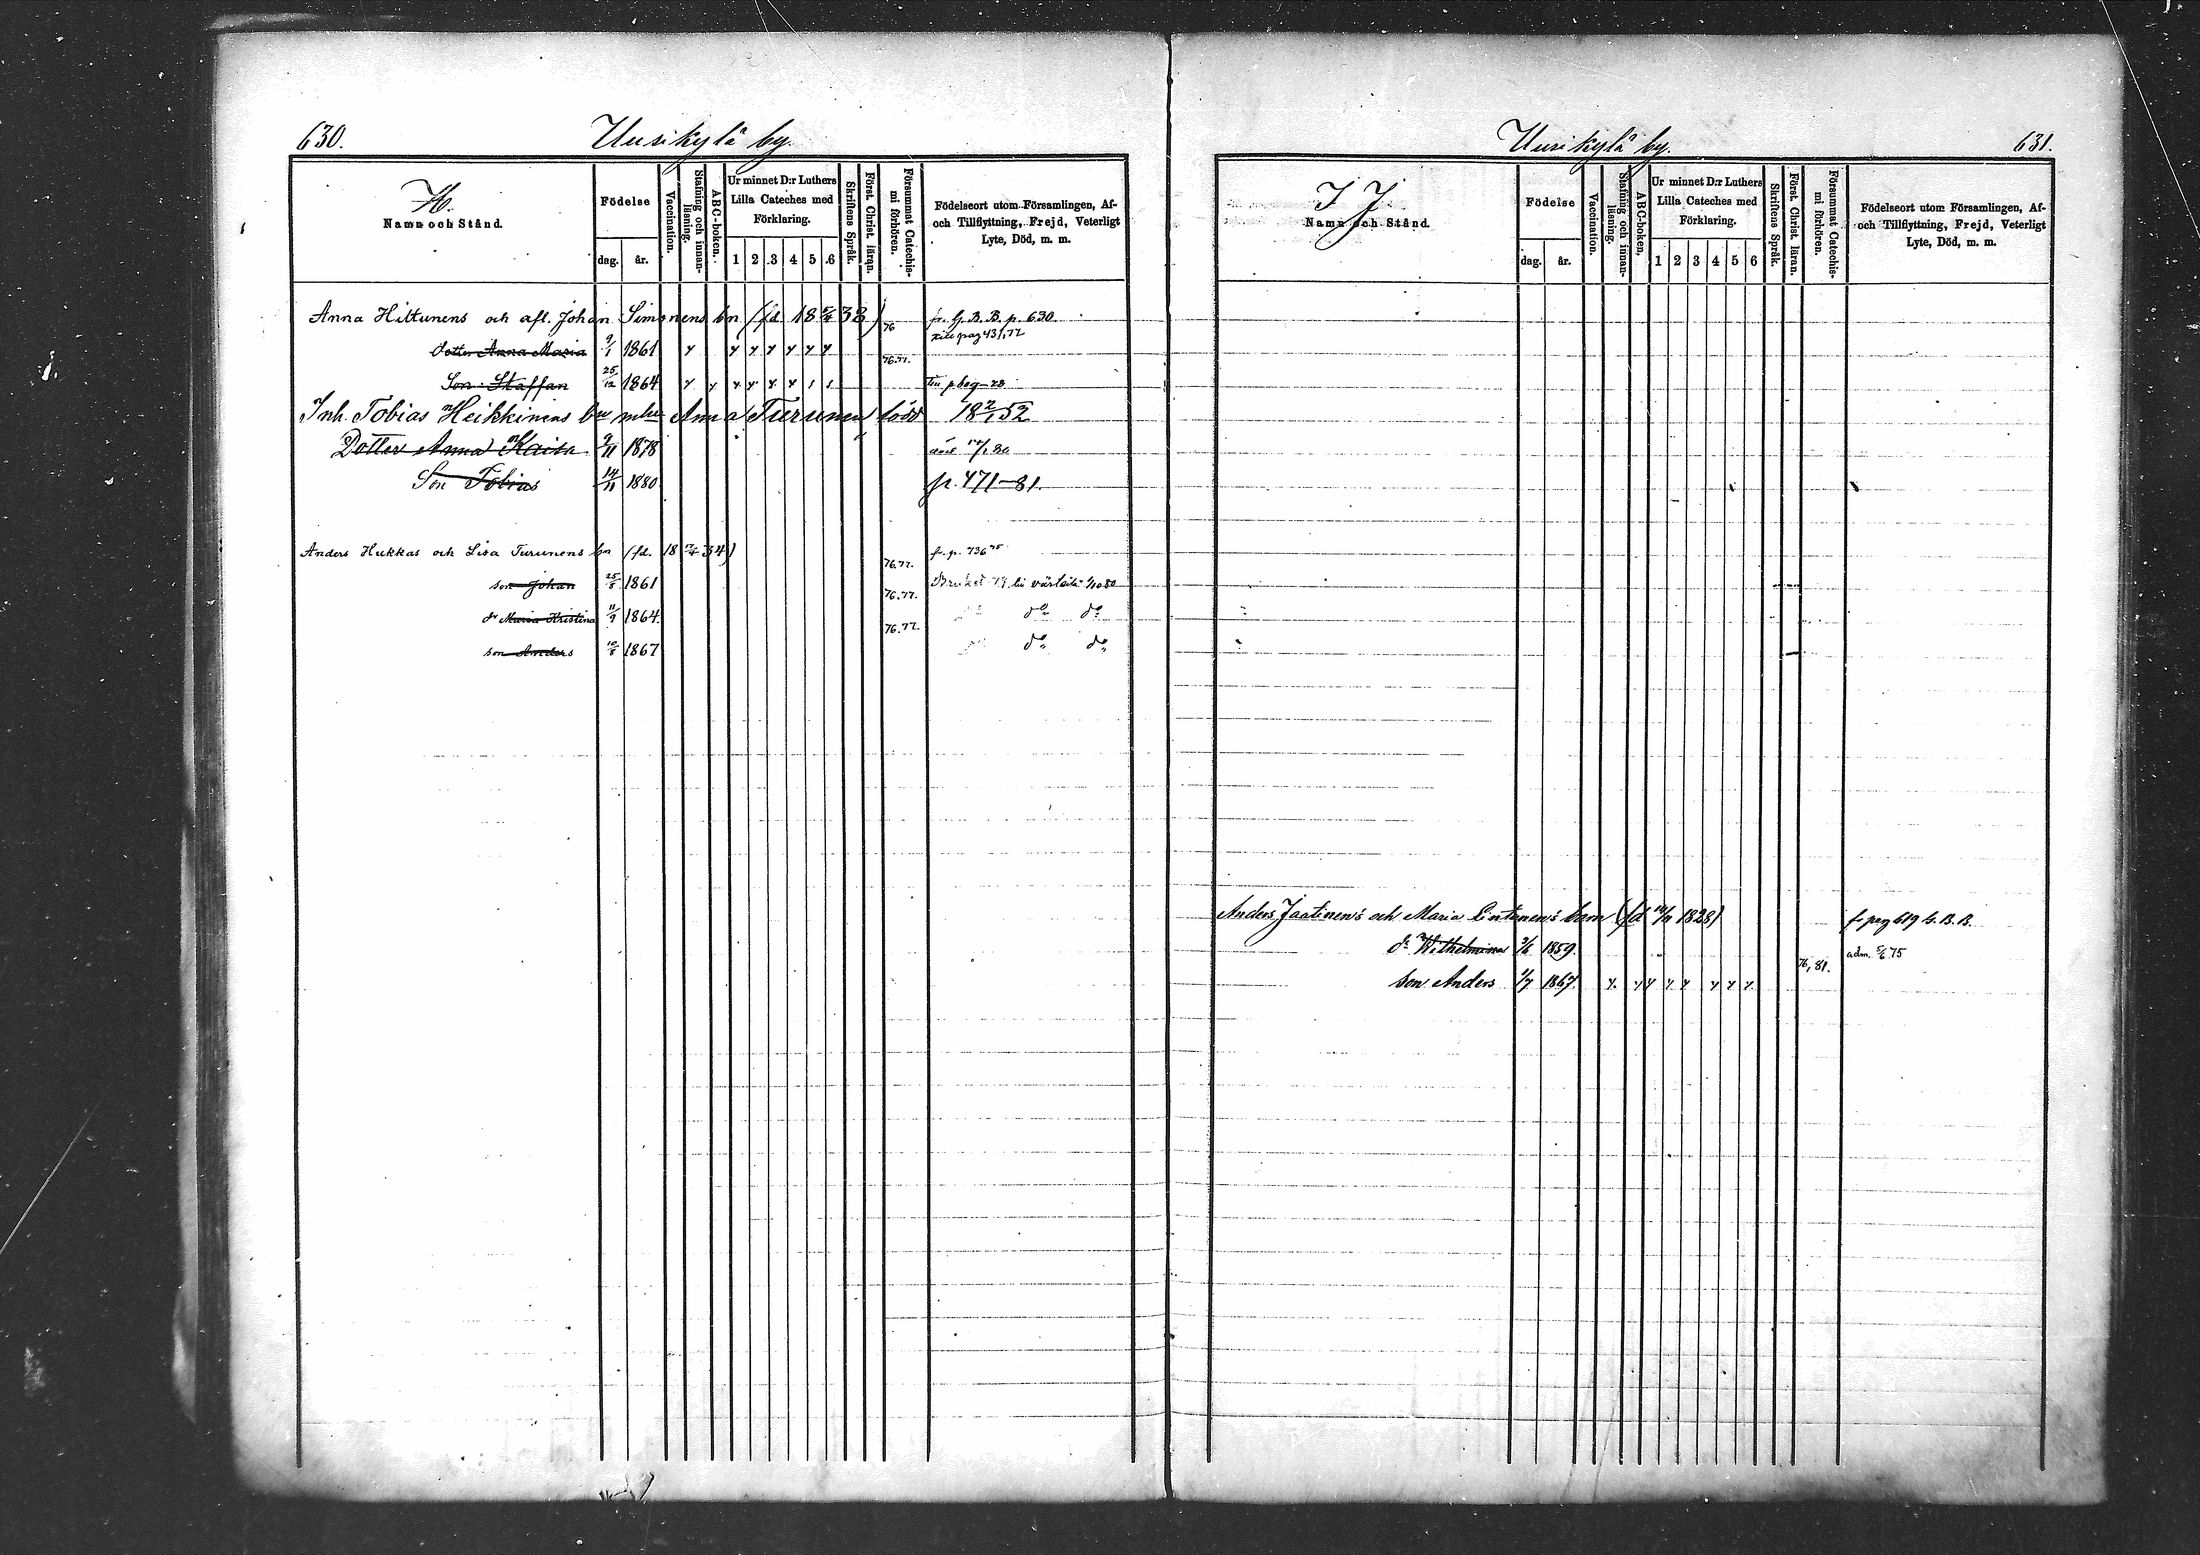 630. Uusikylä by.
H.
Namn och Stånd.
Födelse
dag. år.
Vaccination.
Stafning och innanläsning.
ABC-boken.
Ur minnet D:r Luthers Lilla Cateches med Förklaring.
1 2 3 4 5 6
Skriftens Språk.
Först. Christ. läran.
Försummat Catechismi förhören.
Födelseort utom Församlingen, Af- och Tillflyttning, Frejd, Veterligt Lyte, Död, m. m.
Anna Hiltunens och afl. Johan Simonens bn (fd 18 38) 76 fr. G. B. B. p. 630.
dotter Anna Maria 9/1 1861 76.77.
Son Staffan 25/12 1864
Inh. Tobias Heikkinens bn m hu Anna Turunen född 18 2/1 52
Dotter Anna Kaisa 9/11 1878
Son Tobias 14/11 1880 fr. 471-81.
Anders Hukkas och Lisa Turunens bn (fd. 18 34) 76.77. fr. p. 736 75
son Johan 25/8 1861 76.77.
dr Maria Kristina 11/9 1864. 76.77. do do
son Anders 10/8 1867 do do
Uusikylä by. 631.
I J.
Namn och Stånd.
Födelse
dag. år.
Vaccination.
Stafning och innanläsning.
ABC-boken,
Ur minnet D:r Luthers Lilla Cateches med Förklaring.
1 2 3 4 5 6
Skriftens Språk.
Först. Christ. läran.
Försummat Catechismi förhören.
Födelseort utom Församlingen, Af- och Tillflyttning, Frejd, Veterligt Lyte, Död, m. m.
Anders Jaatinen's och Maria barn (fd 1828) fr pag 619 G. B. B.
dr Wilhelmina 3/6 1859. 76, 81. adm. 5/6 75
son Anders 1/7 1867.